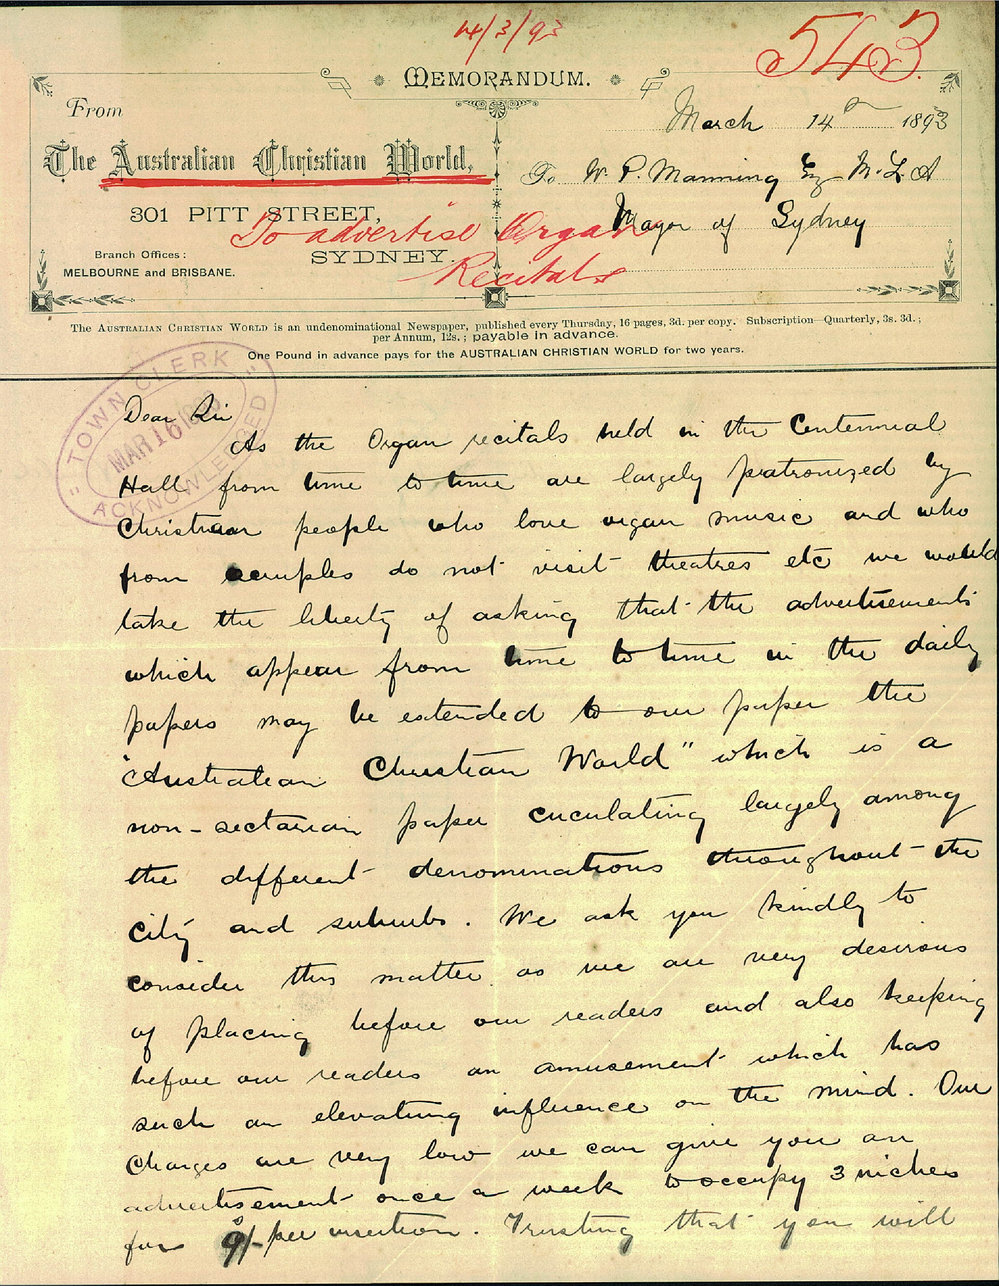 14/3/93
543
MEMORANDUM.
From
March 14th 1893
The Australian Christian World,
To W. P. Manning Esq M.L.A
301 PITT STREET,
Mayor of Sydney
To advertise Organ
SYDNEY.
Recitals
Branch Offices:
MELBOURNE and BRISBANE.
The AUSTRALIAN CHRISTIAN WORLD is an undenominational Newspaper, published every Thursday, 16 pages, 3d. per copy. Subscription—Quarterly, 3s. 3d.;
per Annum, 12s.; payable in advance.
One Pound in advance pays for the AUSTRALIAN CHRISTIAN WORLD for two years.
TOWN CLERK
MAR 16 1893
ACKNOWLEDGED
Dear Sir
As the Organ recitals held in the Centennial
Hall from time to time are largely patronized by
Christian people who love organ music and who
from scruples do not visit theatres etc we would
take the liberty of asking that the advertisements
which appear from time to time in the daily
papers may be extended to our paper the
"Australian Christian World" which is a
non-sectarian paper circulating largely among
the different denominations throughout the
city and suburbs. We ask you kindly to
consider this matter as we are very desirous
of placing before our readers and also keeping
before our readers an amusement which has
such an elevating influence on the mind. Our
Charges are very low we can give you an
advertisement once a week to occupy 3 inches
for 9/- per insertion. Trusting that you will